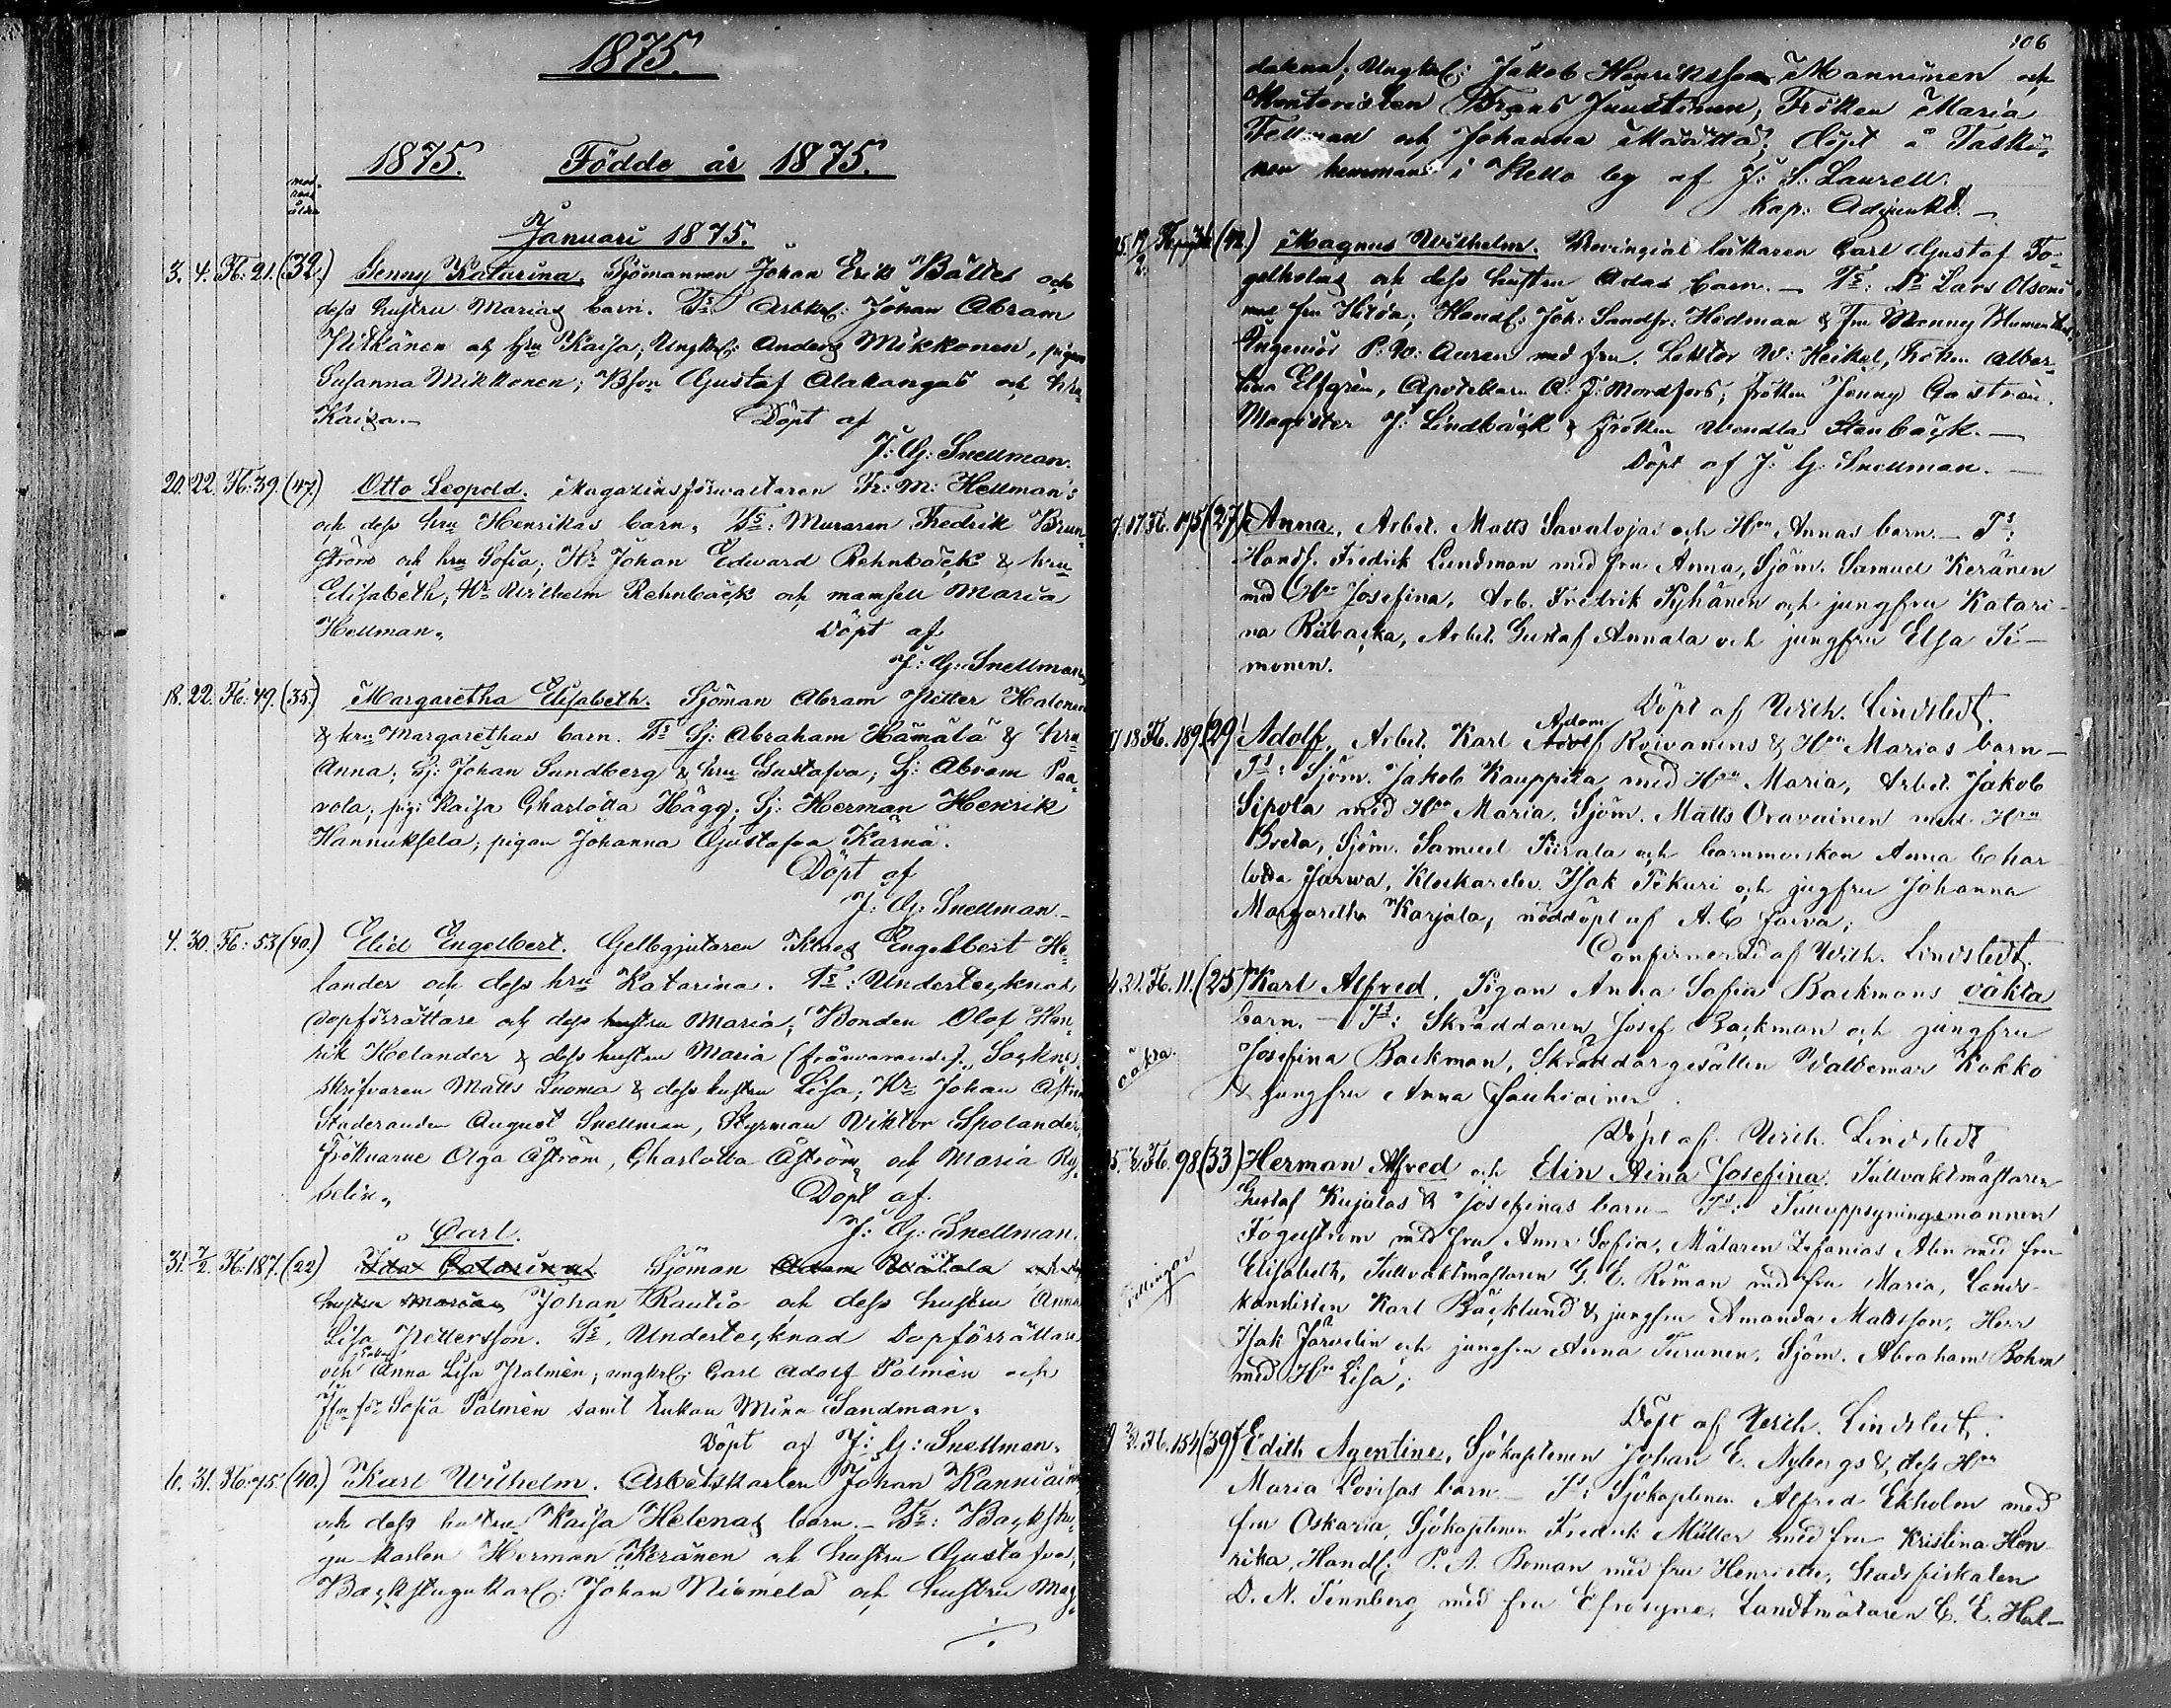 1875.
1875. Födde år 1875.
mod-
rens
ålder
Januari 1875.
3. 4. Fb: 21. (32.) Jenny Katarina. Sjömannen Johan Erik Båttel och
dess hustru Marias barn. Ts: Arbkrl: Johan Abram
Pitkänen och hru Kaisa; Ungkrl: Anders Mikkonen, pigan
Susanna Mikkonen; Bson Gustaf Alakangas och hru
Kaisa. Döpt af
J: G: Snellman.
20. 22. Fb: 39. (47.) Otto Leopold. Magazinsförvaltaren Fr: M: Hellman's
och dess hru Henrikas barn. Ts: Muraren Fredrik Brun-
ström och hru Sofia; Hr Johan Edward Rehnbäck & hru
Elisabeth; Hr Wilhelm Rehnbäck och mamsell Maria
Hellman. Döpt af
J: G: Snellman
18. 22. Fb: 49. (35.) Margaretha Elisabeth. Sjöman Abram Petter Halonen
& hru Margarethas barn. Ts Sj: Abraham Hämälä & hru
Anna; Sj: Johan Sundberg & hru Gustafva; Sj: Abram Paa-
vola; pig: Kaisa Charlotta Hägg; Sj: Herman Henrik
Hannuksela; pigan Johanna Gustafva Kärnä.
Döpt af
J: G: Snellman.
4. 30. Fb: 53 (40.) Elid Engelbert. Gelbgjutaren Klas Engelbert He-
lander och dess hru Katarina. Ts: Undertecknad
dopförrättare och dess hustru Maria; Bonden Olof Hen-
rik Helander & dess hustru Maria (frånvarande). Sockne-
skrifvaren Matts Luoma & dess hustru Lisa; Hr Johan
Studeranden August Snellman, Styrman Viktor Spolander,
Fröknarne Olga Åström, Charlotta Åström och Maria Ry-
selin. Döpt af
J: G: Snellman.
Carl.
31. 7/2. Fb: 187. (22) Ida Catarina Sjöman Adam Määtala och dess
hustru Marias Johan Rautio och dess hustru Anna
Lisa Pettersson. Ts. Undertecknad Dopförrättare
och Anna Lisa Palmén; ungkrl: Carl Adolf Palmén och
Sofia Palmén samt Enkan Mina Sandman.
Döpt af J: G: Snellman.
6. 31. Fb: 75. (40.) Karl Wilhelm. Arbetskarlen Johan Kanniain
och dess hustru Kaisa Helenas barn. Ts: Backstu-
gu-karlen Herman Keränen och hustru Gustafva,
Backstugukarl: Johan Niemelä och hustru Mag-
106
dalena; Ungkrl: Jakob Henriksson Manninen och
Kontoristen Frans Juustinen; Fröken Maria
Fellman och Johanna Määttä; Döpt å Taski-
nen hemman i Kello by af J: S: Laurell.
Kap: Adjunkt.
25. 12/2. (42.) Magnus Wilhelm. Provincial läkaren Carl Gustaf Fo-
gelholms och dess hustru Adas barn. Ts: Dr Lars Olsoni
med fru Hilda; Handl: Joh: Sandfr: Hedman & Fru Nanny
Ingeniör P: W: Auren med fru. Lektor W: Heikel, fröken Alber-
tina Elfgrén, Apotekare A: F: Nordfors; fröken Jenny Castrén.
Magister J: Lindbäck & fröken Wendla Stenbäck.
Döpt af J: G Snellman.
7. 17. Fb. 175 (27) Anna, Arbet. Matts Savalojas och Hru Annas barn. Ts:
Handl. Fredrik Lundman med fru Anna, Sjöm. Samuel Keränen
med Hru Josefina, Arb. Fredrik Pyhänen och jungfru Katari-
na Rübacka, Arbet. Gustaf Annala och jungfru Elsa Si-
monen.
Döpt af Wilh. Lindstedt.
18. Fb. 189. (29) Adolf, Arbet. Karl Adolf Adam Roivanens & Hru Marias barn
Ts: Sjöm. Jakob Kauppila med Hru Maria, Arbet. Jakob
Sipola med Hru Maria, Sjöm. Matts Oravainen med Hru
Breta, Sjöm. Samuel Piirala och barnmorskan Anna Char-
lotta Jarva, Klockarelev. Isak Pekuri och jugfru Johanna
Margaretha Karjala, nöddöpt af A. C Jarva;
Confirmerad af Wilh. Lindstedt.
4. 21. Fb. 11. (25) Karl Alfred, Pigan Anna Sofia Backmans oäkta
barn. Ts: Skräddaren Josef Backman och jungfru
oäkta. Josefina Backman, Skräddargesällen Valdemar Kokko
& jungfru Anna Jauhiainen.
Döpt af Wilh. Lindstedt
Fb. 98 (33) Herman Alfred och Elin Aina Josefina. Tullvaktmästaren
Gustaf Kujalas & Josefinas barn Ts: Tulluppsyningsmannen
Fogelström med fru Anna Sofia, Målaren Zefanias Alin med fru
Tvillingar Elisabeth, Tullvaktmästaren G. E. Roman med fru Maria, Cands-
kandisten Karl Bäcklund & jungfru Amanda Mattsson, Herr
Isak Järvelin och jungfru Anna Turunen. Sjöm. Abraham Bohm
med Hru Lisa;
Döpt af Wilh. Lindstedt.
Fb. 154 (39) Edith Agentine, Sjökaptenen Johan E. Nybergs & dess Hru
Maria Lovisas barn Ts: Sjökaptenen Alfred Ekholm med
fru Oskaria, Sjökaptenen Fredrik Müller med fru Kristina Hen-
rika, Handl: P. A. Boman med fru Henriette, Stadsfiskalen
D. N. Tennberg med fru Efrosyne. Landtmätaren C. E. Hal-